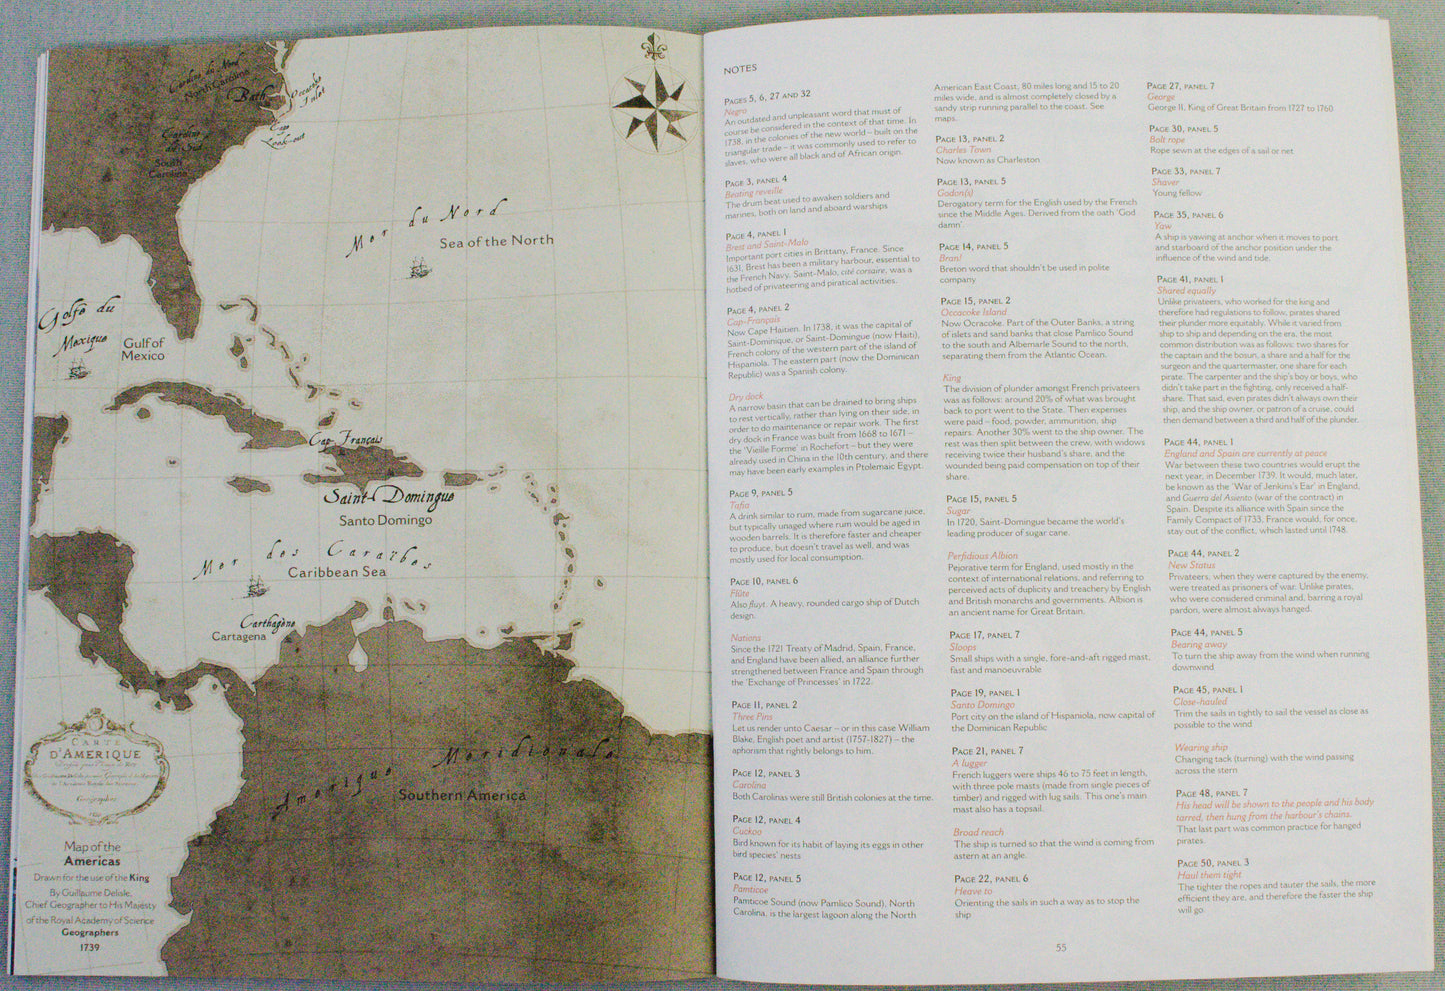 Carolina du Nord
North Carolina
Bath
Occacoke
Inlet
Cap
Look-out
Caroline
du Sud
South
Carolina
Mer du Nord
Sea of the North
Golfe du
Mexique
Gulf of
Mexico
Cap Français
Saint-Domingue
Santo Domingo
Mer des Caraïbes
Caribbean Sea
Carthagène
Cartagena
Amérique Méridionale
Southern America
CARTE
D'AMERIQUE
Map of the
Americas
Drawn for the use of the King
By Guillaume Delisle,
Chief Geographer to His Majesty
of the Royal Academy of Science
Geographers
1739
NOTES
PAGES 5, 6, 27 AND 32
Negro
An outdated and unpleasant word that must of
course be considered in the context of that time. In
1738, in the colonies of the new world – built on the
triangular trade – it was commonly used to refer to
slaves, who were all black and of African origin.
PAGE 3, PANEL 4
Beating reveille
The drum beat used to awaken soldiers and
marines, both on land and aboard warships
PAGE 4, PANEL 1
Brest and Saint-Malo
Important port cities in Brittany, France. Since
1631, Brest has been a military harbour, essential to
the French Navy. Saint-Malo, cité corsaire, was a
hotbed of privateering and piratical activities.
PAGE 4, PANEL 2
Cap-Français
Now Cape Haitien. In 1738, it was the capital of
Saint-Dominique, or Saint-Domingue (now Haiti),
French colony of the western part of the island of
Hispaniola. The eastern part (now the Dominican
Republic) was a Spanish colony.
Dry dock
A narrow basin that can be drained to bring ships
to rest vertically, rather than lying on their side, in
order to do maintenance or repair work. The first
dry dock in France was built from 1668 to 1671 –
the 'Vieille Forme' in Rochefort – but they were
already used in China in the 10th century, and there
may have been early examples in Ptolemaic Egypt.
PAGE 9, PANEL 5
Tafia
A drink similar to rum, made from sugarcane juice,
but typically unaged where rum would be aged in
wooden barrels. It is therefore faster and cheaper
to produce, but doesn't travel as well, and was
mostly used for local consumption.
PAGE 10, PANEL 6
Flûte
Also fluyt. A heavy, rounded cargo ship of Dutch
design.
Nations
Since the 1721 Treaty of Madrid, Spain, France,
and England have been allied, an alliance further
strengthened between France and Spain through
the 'Exchange of Princesses' in 1722.
PAGE 11, PANEL 2
Three Pins
Let us render unto Caesar – or in this case William
Blake, English poet and artist (1757-1827) – the
aphorism that rightly belongs to him.
PAGE 12, PANEL 3
Carolina
Both Carolinas were still British colonies at the time.
PAGE 12, PANEL 4
Cuckoo
Bird known for its habit of laying its eggs in other
bird species' nests
PAGE 12, PANEL 5
Pamticoe
Pamticoe Sound (now Pamlico Sound), North
Carolina, is the largest lagoon along the North
American East Coast, 80 miles long and 15 to 20
miles wide, and is almost completely closed by a
sandy strip running parallel to the coast. See
maps.
PAGE 13, PANEL 2
Charles Town
Now known as Charleston
PAGE 13, PANEL 5
Godon(s)
Derogatory term for the English used by the French
since the Middle Ages. Derived from the oath 'God
damn'.
PAGE 14, PANEL 5
Bran!
Breton word that shouldn't be used in polite
company
PAGE 15, PANEL 2
Occacoke Island
Now Ocracoke. Part of the Outer Banks, a string
of islets and sand banks that close Pamlico Sound
to the south and Albemarle Sound to the north,
separating them from the Atlantic Ocean.
King
The division of plunder amongst French privateers
was as follows: around 20% of what was brought
back to port went to the State. Then expenses
were paid – food, powder, ammunition, ship
repairs. Another 30% went to the ship owner. The
rest was then split between the crew, with widows
receiving twice their husband's share, and the
wounded being paid compensation on top of their
share.
PAGE 15, PANEL 5
Sugar
In 1720, Saint-Domingue became the world's
leading producer of sugar cane.
Perfidious Albion
Pejorative term for England, used mostly in the
context of international relations, and referring to
perceived acts of duplicity and treachery by English
and British monarchs and governments. Albion is
an ancient name for Great Britain.
PAGE 17, PANEL 7
Sloops
Small ships with a single, fore-and-aft rigged mast,
fast and manoeuvrable
PAGE 19, PANEL 1
Santo Domingo
Port city on the island of Hispaniola, now capital of
the Dominican Republic
PAGE 21, PANEL 7
A lugger
French luggers were ships 46 to 75 feet in length,
with three pole masts (made from single pieces of
timber) and rigged with lug sails. This one's main
mast also has a topsail.
Broad reach
The ship is turned so that the wind is coming from
astern at an angle.
PAGE 22, PANEL 6
Heave to
Orienting the sails in such a way as to stop the
ship
PAGE 27, PANEL 7
George
George II, King of Great Britain from 1727 to 1760
PAGE 30, PANEL 5
Bolt rope
Rope sewn at the edges of a sail or net
PAGE 33, PANEL 7
Shaver
Young fellow
PAGE 35, PANEL 6
Yaw
A ship is yawing at anchor when it moves to port
and starboard of the anchor position under the
influence of the wind and tide.
PAGE 41, PANEL 1
Shared equally
Unlike privateers, who worked for the king and
therefore had regulations to follow, pirates shared
their plunder more equitably. While it varied from
ship to ship and depending on the era, the most
common distribution was as follows: two shares for
the captain and the bosun, a share and a half for the
surgeon and the quartermaster, one share for each
pirate. The carpenter and the ship's boy or boys, who
didn't take part in the fighting, only received a half-
share. That said, even pirates didn't always own their
ship, and the ship owner, or patron of a cruise, could
then demand between a third and half of the plunder.
PAGE 44, PANEL 1
England and Spain are currently at peace
War between these two countries would erupt the
next year, in December 1739. It would, much later,
be known as the 'War of Jenkins's Ear' in England,
and Guerra del Asiento (war of the contract) in
Spain. Despite its alliance with Spain since the
Family Compact of 1733, France would, for once,
stay out of the conflict, which lasted until 1748.
PAGE 44, PANEL 2
New Status
Privateers, when they were captured by the enemy,
were treated as prisoners of war. Unlike pirates,
who were considered criminal and, barring a royal
pardon, were almost always hanged.
PAGE 44, PANEL 5
Bearing away
To turn the ship away from the wind when running
downwind
PAGE 45, PANEL 1
Close-hauled
Trim the sails in tightly to sail the vessel as close as
possible to the wind
Wearing ship
Changing tack (turning) with the wind passing
across the stern
PAGE 48, PANEL 7
His head will be shown to the people and his body
tarred, then hung from the harbour's chains.
That last part was common practice for hanged
pirates.
PAGE 50, PANEL 3
Haul them tight
The tighter the ropes and tauter the sails, the more
efficient they are, and therefore the faster the ship
will go
55